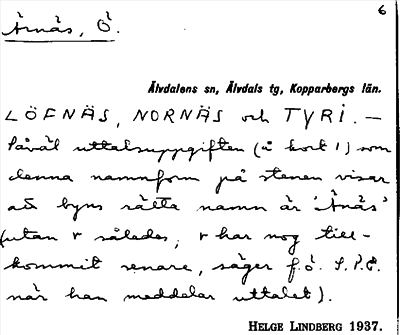 6
Ärnäs, Ö.
Älvdalens sn, Älvdals tg, Kopparbergs län.
LÖFNÄS, NORNÄS och TYRI. —
Såväl uttalsuppgiften (å kort 1) som
denna namnform på stenen visar
att byns rätta namn är 'Änäs'
(utan r således; r har nog till-
kommit senare, säger f.ö. S.P.E.
när han meddelar uttalet).
HELGE LINDBERG 1937.